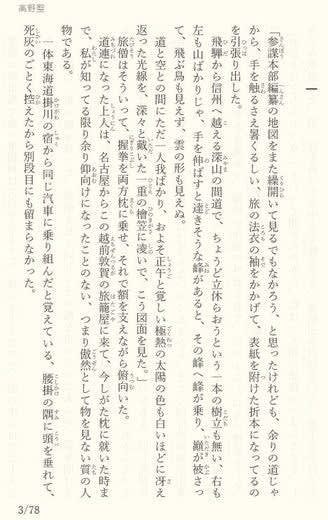 高野聖
一
「参謀本部編纂の地図をまた繰開いて見るでもなかろう、と思ったけれども、余りの道じゃ
から、手を触るさえ暑くるしい、旅の法衣の袖をかかげて、表紙を附けた折本になってるの
を引張り出した。
飛騨から信州へ越える深山の間道で、ちょうど立休らおうという一本の樹立も無い、右も
左も山ばかりじゃ、手を伸ばすと達きそうな峰があると、その峰へ峰が乗り、巓が被さっ
て、飛ぶ鳥も見えず、雲の形も見えぬ。
道と空との間にただ一人我ばかり、およそ正午と覚しい極熱の太陽の色も白いほどに冴え
返った光線を、深々と戴いた一重の檜笠に凌いで、こう図面を見た。」
旅僧はそういって、握拳を両方枕に乗せ、それで額を支えながら俯向いた。
道連になった上人は、名古屋からこの越前敦賀の旅籠屋に来て、今しがた枕に就いた時ま
で、私が知ってる限り余り仰向けになったことのない、つまり傲然として物を見ない質の人
物である。
一体東海道掛川の宿から同じ汽車に乗り組んだと覚えている、腰掛の隅に頭を垂れて、
死灰のごとく控えたから別段目にも留まらなかった。
3/78